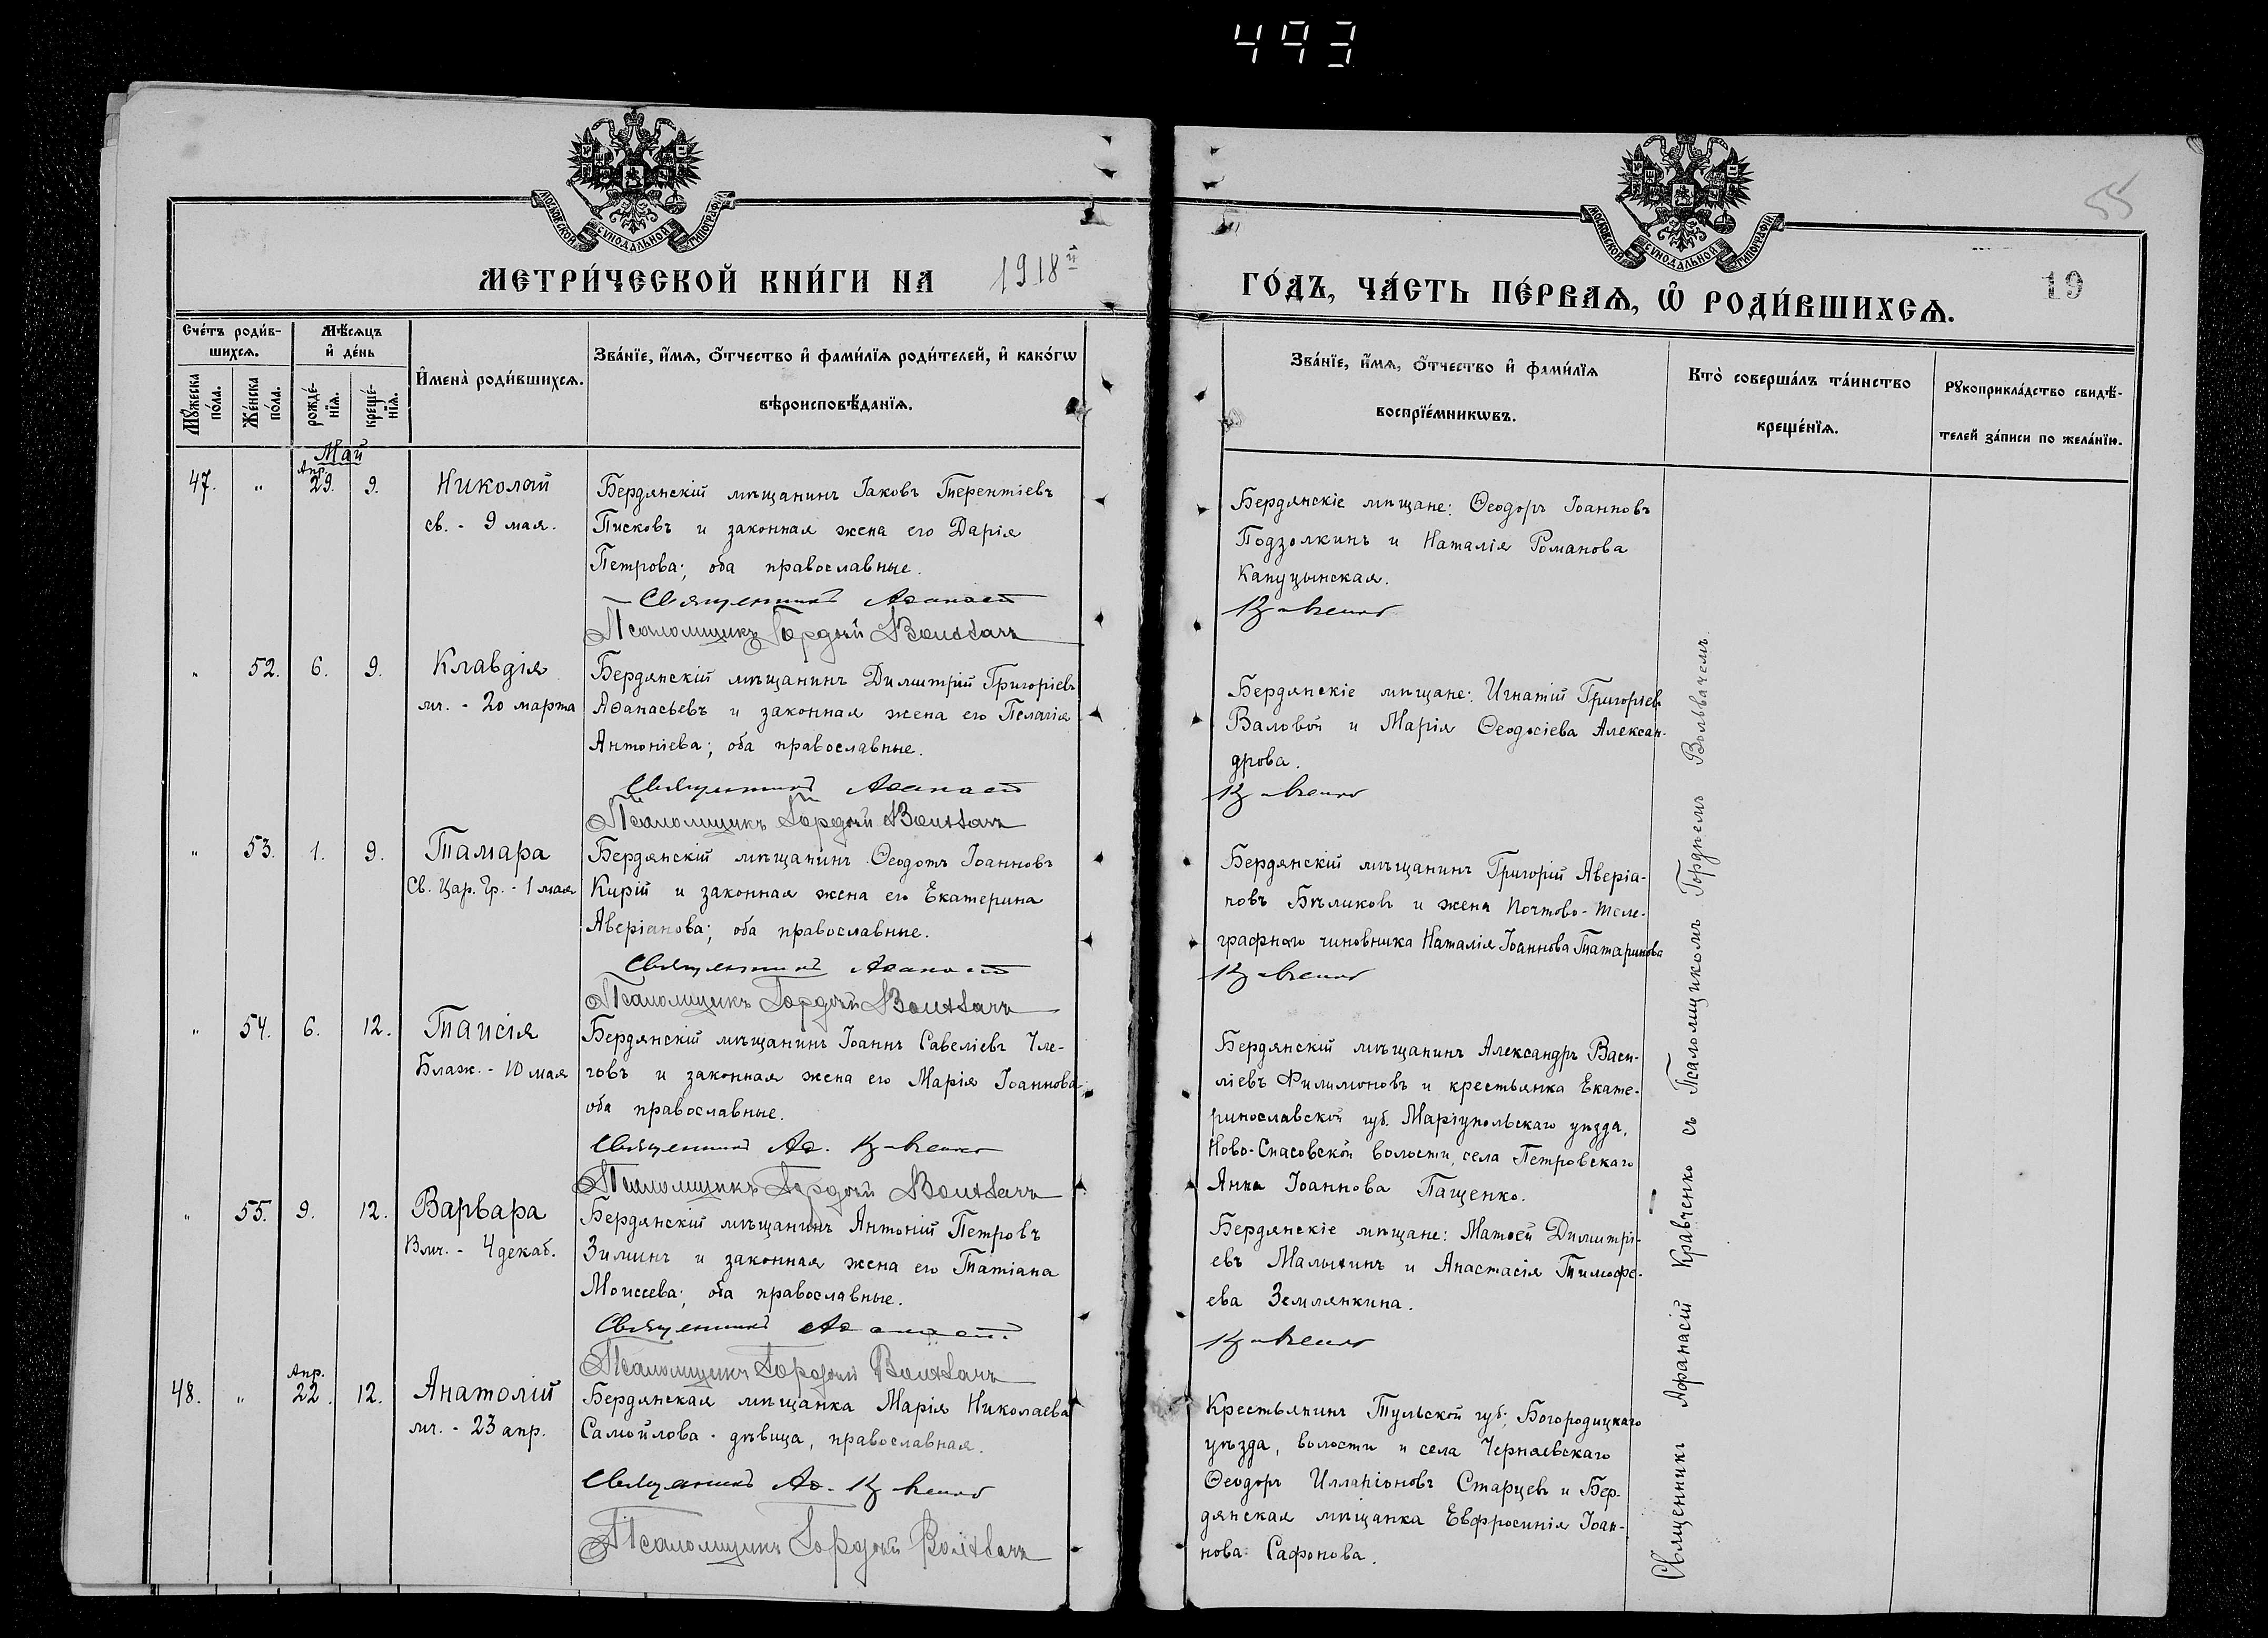 493
МОСКОВСКОЙ СѴНОДАЛЬНОЙ ТИПОГРАФІИ
МОСКОВСКОЙ СѴНОДАЛЬНОЙ ТИПОГРАФІИ
55
МЕТРИ́ЧЕСКОЙ КНИ́ГИ НА 1918й
ГО́ДЪ, ЧА́СТЬ ПЕ́РВАѦ, Ѡ҆ РОДИ́ВШИХСѦ.
19
Сче́тъ роди́в-
шихсѧ.
Мѣ́сѧцъ
и҆ де́нь
Мꙋ́жеска
по́ла.
Же́нска
по́ла.
рожде́-
нїѧ.
креще́-
нїѧ.
И҆мена̀ роди́вшихсѧ.
Зва́нїе, и҆́мѧ, о҆́тчество и҆ фами́лїѧ роди́телей, и҆ како́гѡ
вѣроисповѣ́данїѧ.
Зва́нїе, и҆́мѧ, о҆́тчество и҆ фами́лїѧ
воспрїе́мникѡвъ.
Кто̀ соверша́лъ та́инство
креще́нїѧ.
Рꙋкоприкла́дство свидѣ́-
телей за́писи по жела́нїю.
Май
47. " Апр. 29. 9. Николай
св. - 9 мая.
Бердянскій мѣщанинъ Іаковъ Терентіевъ
Писковъ и законная жена его Дарія
Петрова; оба православные.
Священникъ Афанасій
Псаломщикъ Гордѣй Вольвачъ
Бердянскіе мѣщане: Ѳеодоръ Іоанновъ
Подзолкинъ и Наталія Романова
Капуцынская.
Кравченко
" 52. 6. 9. Клавдія
мч. - 20 марта
Бердянскій мѣщанинъ Димитрій Григоріевъ
Аѳанасьевъ и законная жена его Пелагія
Антоніева; оба православные.
Священникъ Афанасій
Псаломщикъ Гордѣй Вольвачъ
Бердянскіе мѣщане: Игнатій Григоріевъ
Валовой и Марія Ѳеодосіева Алексан-
дрова.
Кравченко
" 53. 1. 9. Тамара
Св. Цар. Гр. - 1 мая
Бердянскій мѣщанинъ Ѳеодотъ Іоанновъ
Кирій и законная жена его Екатерина
Аверіанова; оба православные.
Священникъ Афанасій
Псаломщикъ Гордѣй Вольвачъ
Бердянскій мѣщанинъ Григорій Аверіа-
новъ Бѣликовъ и жена Почтово-теле-
графного чиновника Наталія Іоаннова Татаринова
Кравченко
" 54. 6. 12. Таисія
Блаж. - 10 мая
Бердянскій мѣщанинъ Іоаннъ Савеліевъ Чле-
говъ и законная жена его Марія Іоаннова
оба православные.
Священникъ Аф. Кравченко
Псаломщикъ Гордѣй Вольвачъ
Бердянскій мѣщанинъ Александръ Васи-
ліевъ Филимоновъ и крестьянка Екате-
ринославской губ. Маріупольскаго уѣзда,
Ново-Спасовской волости, села Петровскаго
Анна Іоаннова Пащенко.
" 55. 9. 12. Варвара
Вмч. - 4 декаб.
Бердянскій мѣщанинъ Антоній Петровъ
Зиминъ и законная жена его Татіана
Моисеева; оба православные.
Священникъ Афанасій
Псаломщикъ Гордѣй Вольвачъ
Бердянскіе мѣщане: Матѳей Димитрі-
евъ Малыгинъ и Анастасія Тимофе-
ева Землянкина.
Кравченко
48. " Апр. 22. 12. Анатолій
мч. - 23 апр.
Бердянская мѣщанка Марія Николаева
Самойлова - дѣвица, православная.
Священникъ Аф. Кравченко
Псаломщикъ Гордѣй Вольвачъ
Крестьянинъ Тульской губ; Богородицкаго
уѣзда, волости и села Чернаевскаго
Ѳеодоръ Илларіоновъ Старцевъ и Бер-
дянская мѣщанка Евфросинія Іоан-
нова Сафонова.
Священникъ Афанасій Кравченко съ Псаломщикомъ Гордѣемъ Вольвачемъ